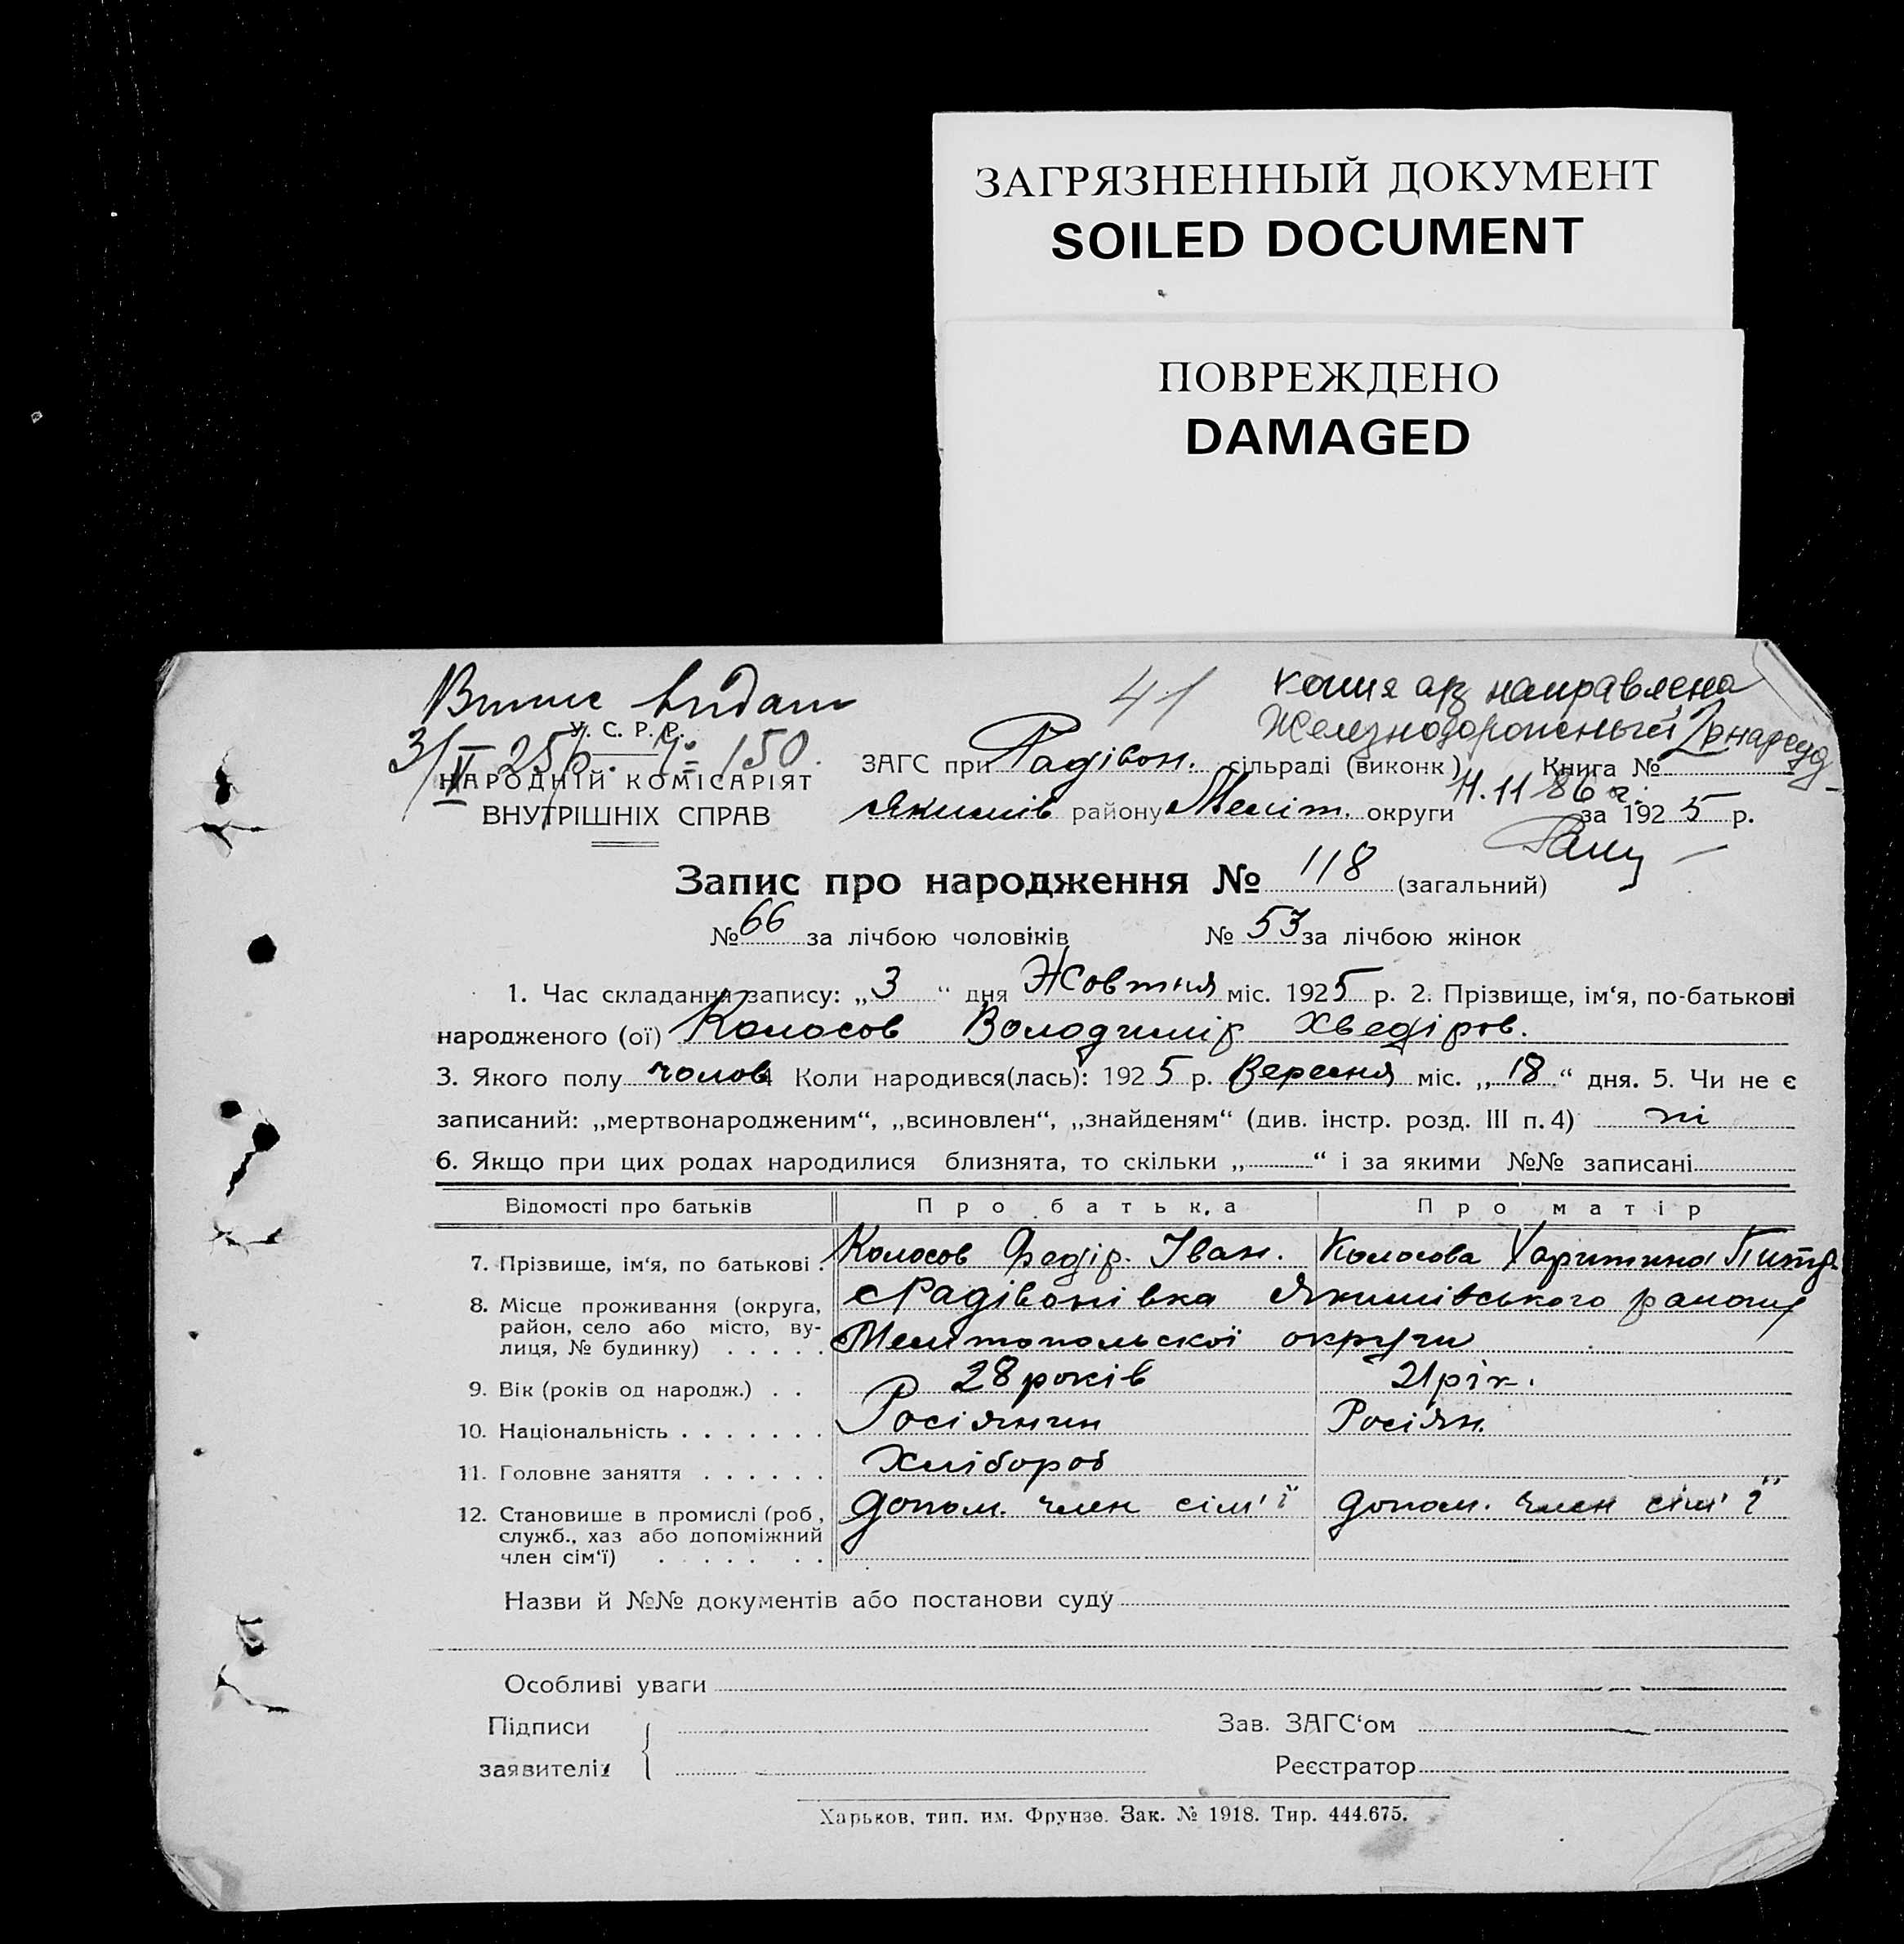 ЗАГРЯЗНЕННЫЙ ДОКУМЕНТ
SOILED DOCUMENT
ПОВРЕЖДЕНО
DAMAGED
41
копия а/з направлена
Железнодорожный
4.11 86 г.
У. С. Р. Р.
150.
НАРОДНІЙ КОМІСАРІЯТ
ВНУТРІШНІХ СПРАВ
ЗАГС при Радівон. сільраді (виконк) Книга №
Якимів району Меліт. округи за 1925 р.
Запис про народження № 118 (загальний)
№ 66 за лічбою чоловіків № 53 за лічбою жінок
1. Час складання запису: „3“ дня Жовтня міс. 1925 р. 2. Прізвище, ім‘я, по-батькові
народженого (ої) Колосов Володимір Хведіров.
3. Якого полу чолов 4 Коли народився(лась): 1925 р. Вересня міс. „18“ дня. 5. Чи не є
записаний: „мертвонародженим“, „всиновлен“, „знайденям“ (див. інстр. розд. III п. 4) ні
6. Якщо при цих родах народилися близнята, то скільки „ “ і за якими №№ записані
Відомості про батьків Про батька Про матір
7. Прізвище, ім‘я, по батькові . Колосов Федір. Іван. Колосова Харитина
8. Місце проживання (округа, район, село або місто, ву-лиця, № будинку) . . . . . с Радівонівка Якимівського району
Мелитопольскої округи
9. Вік (років од народж.) . . 28 років 21 рік.
10. Національність . . . . . . . Росіянин Росіян.
11. Головне заняття . . . . . . Хлібороб
12. Становище в промислі (роб, служб., хаз або допоміжний член сім‘ї) допом. член сім'ї допом. член сім'ї
Назви й №№ документів або постанови суду
Особливі уваги
Підписи Зав. ЗАГС‘ом
заявителів Реєстратор
Харьков, тип. им. Фрунзе. Зак. № 1918. Тир. 444.675.